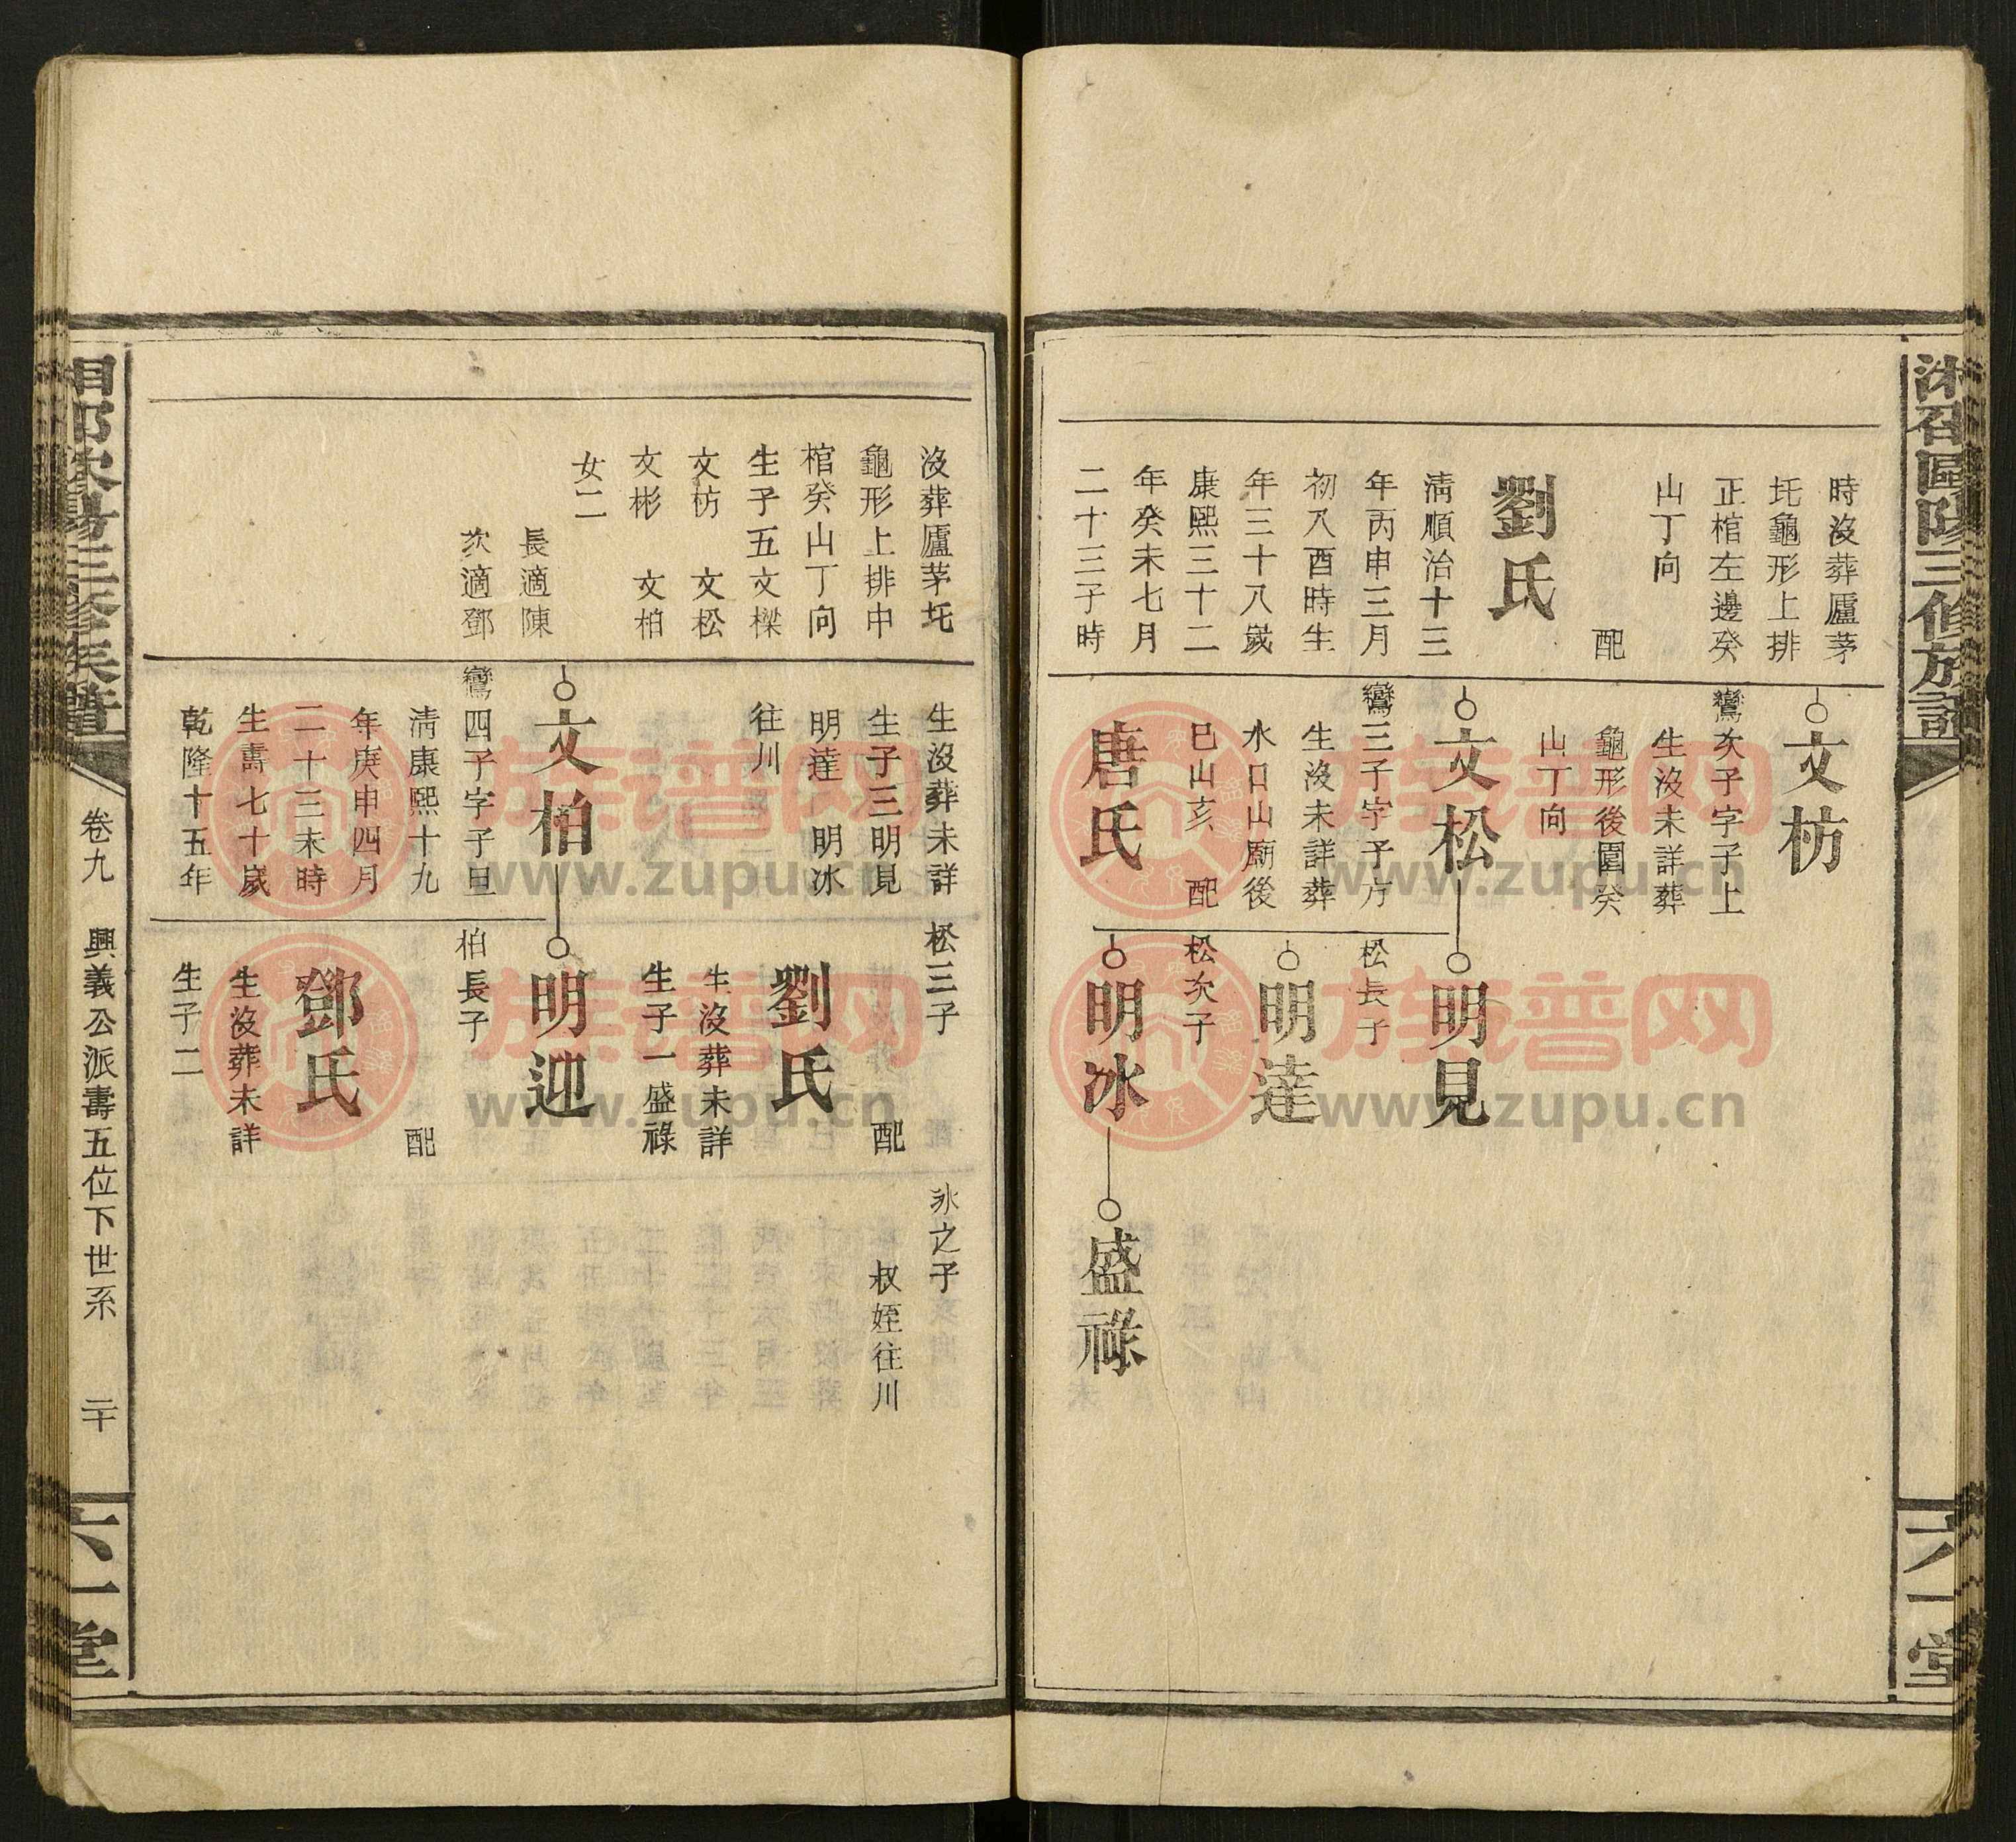 湘邵歐陽三修族譜
六一堂
時沒葬廬茅
圫龜形上排
正棺左邊癸
山丁向
配
劉氏
淸順治十三
年丙申三月
初八酉時生
年三十八歲
康熙三十二
年癸未七月
二十三子時
文枋
鸞次子字子上
生沒未詳葬
龜形後圍癸
山丁向
文松
鸞三子字子方
生沒未詳葬
水口山廟後
巳山亥 配
唐氏
明見
松長子
明達
松次子
明冰
盛祿
沒葬廬茅圫
龜形上排中
棺癸山丁向
生子五文樑
文枋 文松
文彬 文柏
女二
長適陳
次適鄧
生沒葬未詳
生子三明見
明達 明冰
往川
文柏
鸞四子字子旦
淸康熙十九
年庚申四月
二十三未時
生壽七十歲
乾隆十五年
松三子
配
劉氏
生沒葬未詳
生子一盛祿
明迎
柏長子
配
鄧氏
生沒葬未詳
生子二
冰之子
叔姪往川
湘邵歐陽三修族譜
卷九 興義公派壽五位下世系 二十
六一堂
族谱网
www.zupu.cn
族谱网
www.zupu.cn
族谱网
www.zupu.cn
族谱网
www.zupu.cn